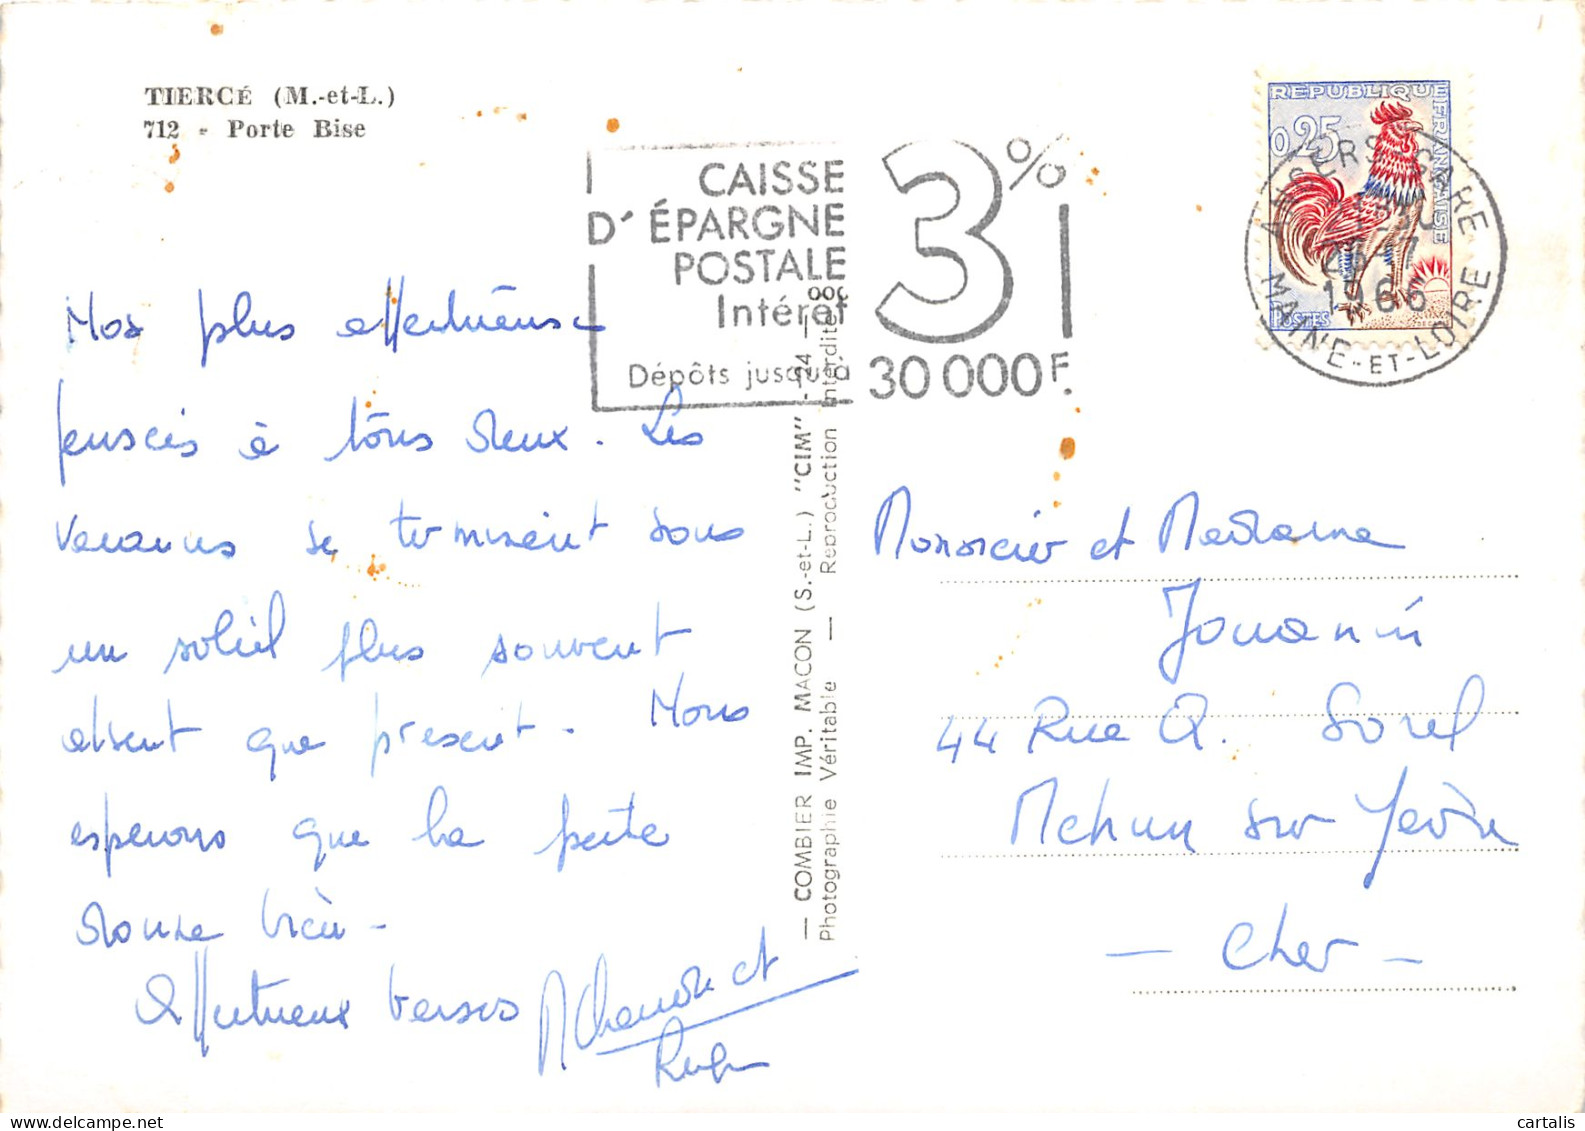 TIERCÉ (M.-et-L.)
712 - Porte Bise
CAISSE
D'ÉPARGNE
POSTALE
Intérêt
3%
Dépôts jusqu'à 30 000 F.
REPUBLIQUE FRANÇAISE
0,25
POSTES
ANGERS GARE
1966
MAINE-ET-LOIRE
Nos plus affectueuses
pensées à tous deux. Les
vacances se terminent sous
un soleil plus souvent
absent que présent. Nous
espérons que la petite
va bien -
Affectueux baisers
et
— COMBIER IMP. MACON (S.-et-L.) "CIM" - 24
Photographie Véritable — Reproduction Interdite
Monsieur et Madame
Jouanin
44 Rue A. Sorel
Mehun sur Yèvre
- Cher -
cartalis